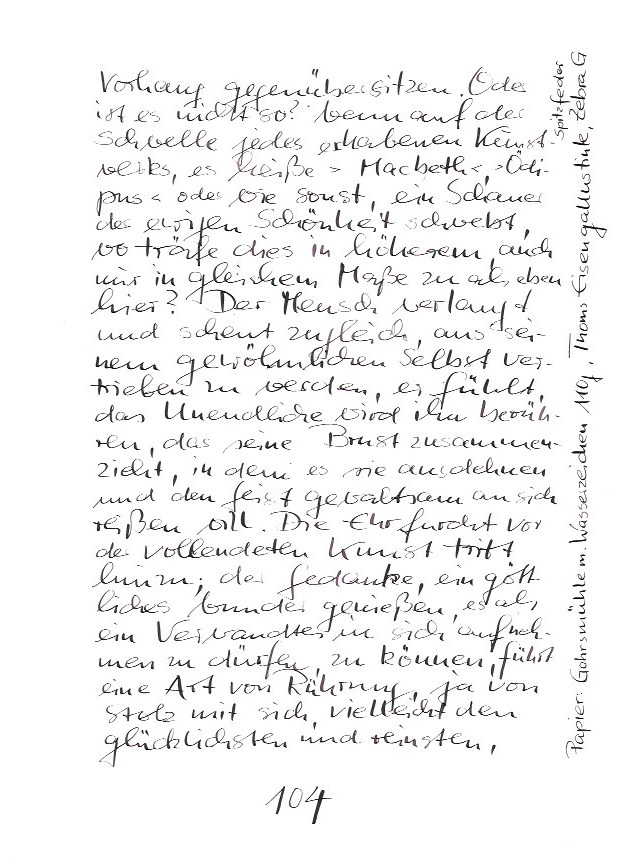 Vorhang gegenübersitzen. Oder
ist es nicht so? Wenn auf der
Schwelle jedes erhabenen Kunst-
werks, es heiße »Macbeth«, »Ödi-
pus« oder wie sonst, ein Schauer
der ewigen Schönheit schwebt,
wo träfe dies in höherem, auch
nur in gleichem Maße zu als eben
hier? Der Mensch verlangt
und scheut zugleich, aus sei-
nem gewöhnlichen Selbst ver-
trieben zu werden, er fühlt,
das Unendliche wird ihn berüh-
ren, das seine Brust zusammen-
zieht, in dem es sie ausdehnen
und den Geist gewaltsam an sich
reißen will. Die Ehrfurcht vor
der vollendeten Kunst tritt
hinzu; der Gedanke, ein gött-
liches Wunder genießen, es als
ein Verwandtes in sich aufneh-
men zu dürfen, zu können, führt
eine Art von Rührung, ja von
Stolz mit sich, vielleicht den
glücklichsten und reinsten,
104
Papier: Gohrsmühle m. Wasserzeichen 110g, Thoms Eisengallustinte, Zebra G
Spitzfeder